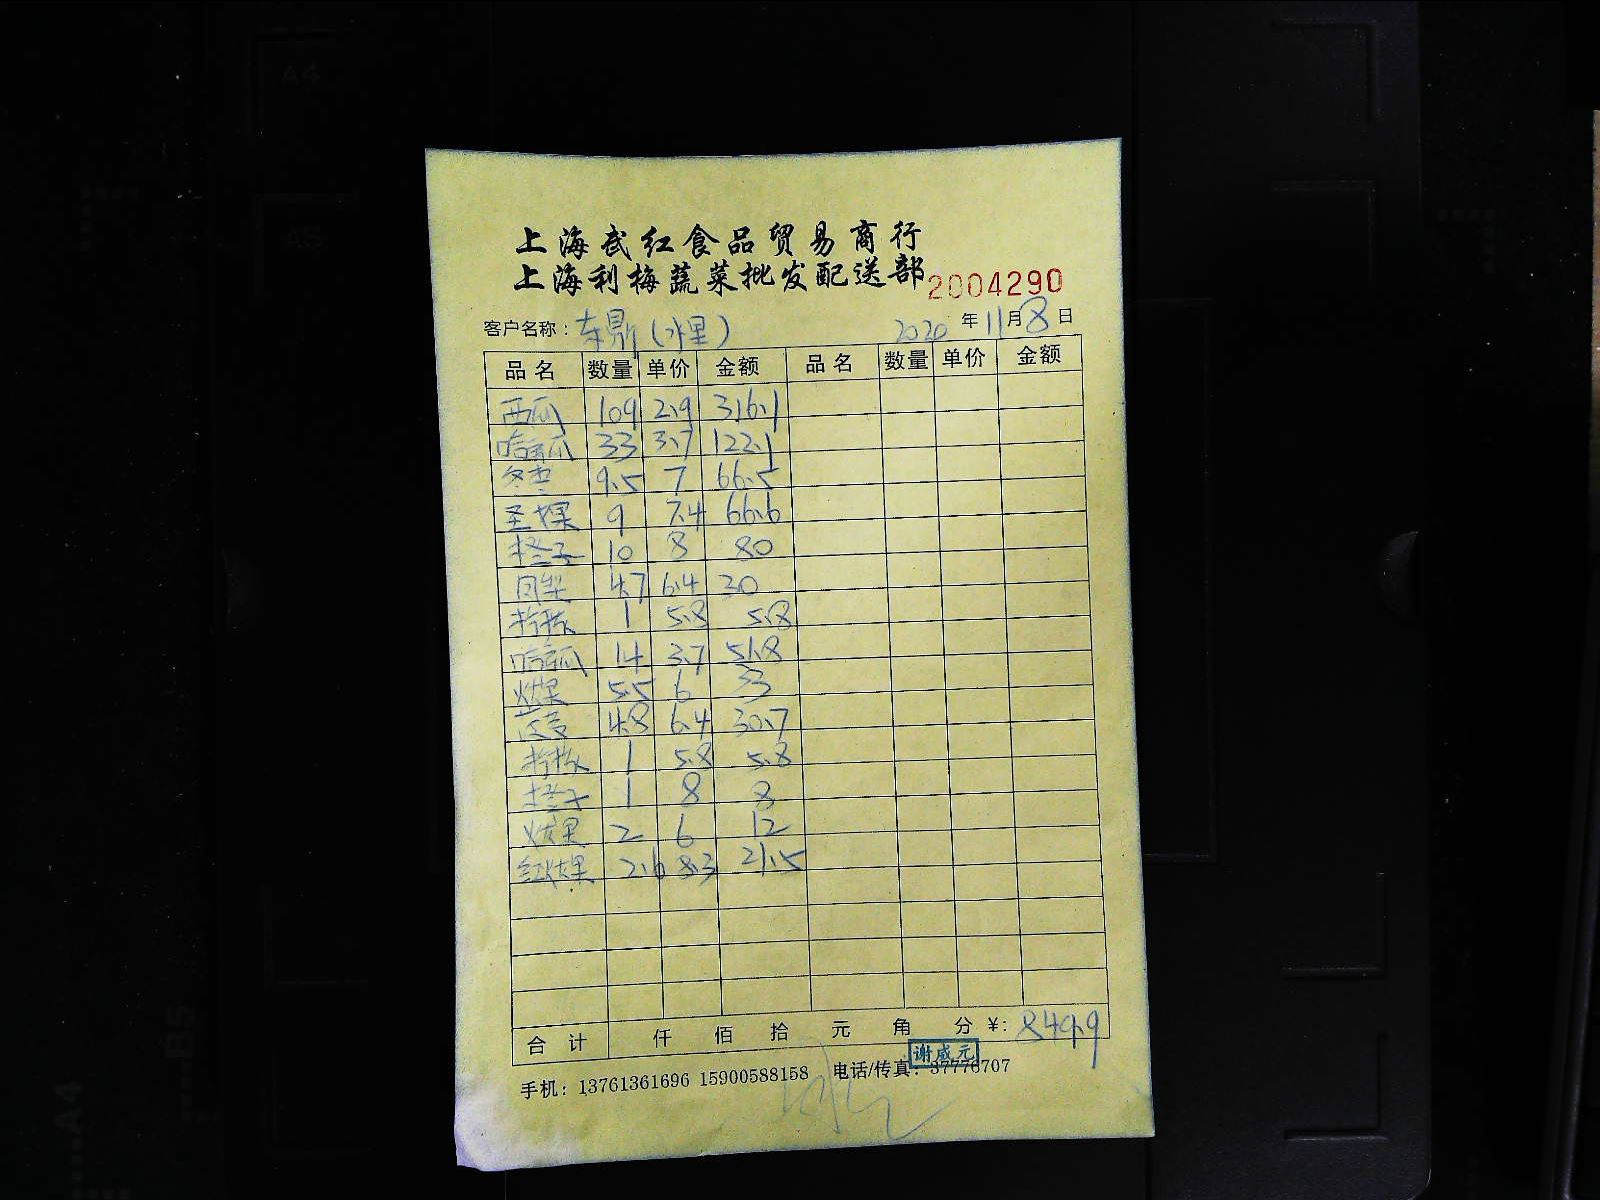 上海武红食品贸易商行
上海利梅蔬菜批发配送部 2004290
客户名称：东鼎(水果) 2020 年 11 月 8 日
品名 数量 单价 金额 品名 数量 单价 金额
西瓜 109 2.9 316.1
哈密瓜 33 3.7 122.1
冬枣 9.5 7 66.5
圣女果 9 7.4 66.6
橙子 10 8 80
4.7 6.4 30
柠檬 1 5.8 5.8
哈密瓜 14 3.7 51.8
火龙果 5.5 6 33
4.8 6.4 30.7
柠檬 1 5.8 5.8
橙子 1 8 8
火龙果 2 6 12
红火龙果 2.6 8.3 21.5
合计 仟 佰 拾 元 角 分 ¥: 849.9
谢咸元
手机：13761361696 15900588158 电话/传真：37776707